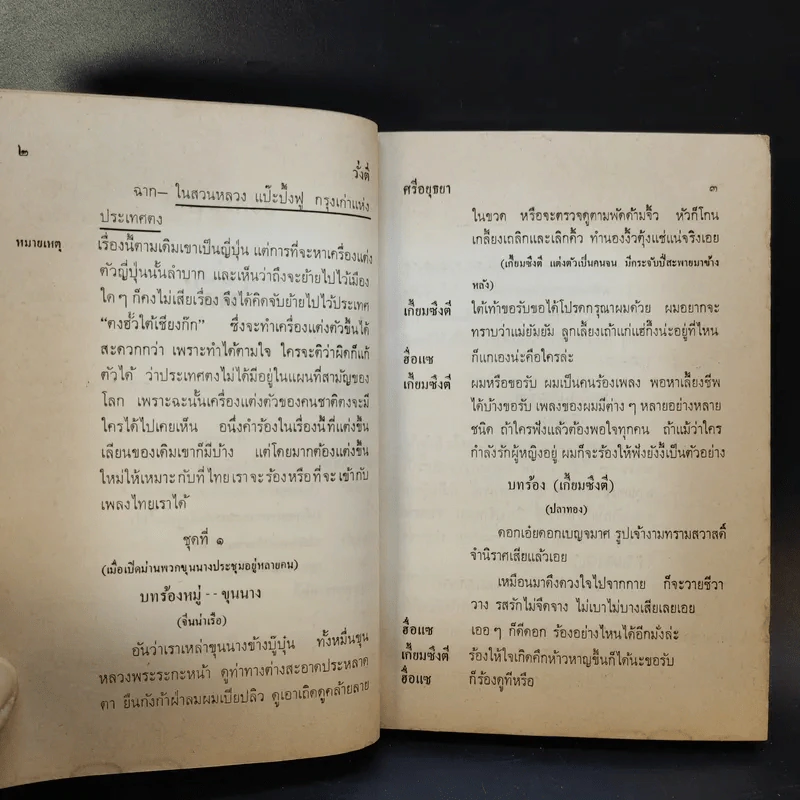 ๒
วั่งตี่
ฉาก— ในสวนหลวง แป๊ะปั๋งฟู กรุงเก่าแห่ง
ประเทศตง
หมายเหตุ เรื่องนี้ตามเดิมเขาเป็นญี่ปุ่น แต่การที่จะหาเครื่องแต่ง
ตัวญี่ปุ่นนั้นลำบาก และเห็นว่าถึงจะย้ายไปไว้เมือง
ใด ๆ ก็คงไม่เสียเรื่อง จึงได้คิดจับย้ายไปไว้ประเทศ
“ตงฮั้วใต้เชียงก๊ก” ซึ่งจะทำเครื่องแต่งตัวขึ้นได้
สะดวกกว่า เพราะทำได้ตามใจ ใครจะติว่าผิดก็แก้
ตัวได้ ว่าประเทศตงไม่ได้มีอยู่ในแผนที่สามัญของ
โลก เพราะฉะนั้นเครื่องแต่งตัวของคนชาติตงจะมี
ใครได้ไปเคยเห็น อนึ่งคำร้องในเรื่องนี้ที่แต่งขึ้น
เลียนของเดิมเขาก็มีบ้าง แต่โดยมากต้องแต่งขึ้น
ใหม่ให้เหมาะกับที่ไทยเราจะร้องหรือที่จะเข้ากับ
เพลงไทยเราได้
ชุดที่ ๑
(เมื่อเปิดม่านพวกขุนนางประชุมอยู่หลายคน)
บทร้องหมู่ -- ขุนนาง
(จีนนำเรือ)
อันว่าเราเหล่าขุนนางข้างบู๊บุ๋น ทั้งหมื่นขุน
หลวงพระระกะหน้า ดูท่าทางต่างสะอาดประหลาด
ตา ยืนกังก้าฝ่าลมผมเปียปลิว ดูเอาเถิดดูคล้ายลาย
ศรีอยุธยา
๓
ในขวด หรือจะตรวจดูตามพัดด้ามจิ้ว หัวก็โกน
เกลี้ยงเถลิกและเลิกคิ้ว ทำนองงิ้วตุ้งแช่แน่จริงเอย
(เกี้ยมซึงตี่ แต่งตัวเป็นคนจน มีกระจับปี่สะพายมาข้าง
หลัง)
เกี้ยมซึงตี่ ใต้เท้าขอรับขอได้โปรดกรุณาผมด้วย ผมอยากจะ
ทราบว่าแม่ยัมยัม ลูกเลี้ยงเถ้าแก่แฮ่กึ๋งน่ะอยู่ที่ไหน
ฮื่อแซ ก็แกเองน่ะคือใครล่ะ
เกี้ยมซึงตี่ ผมหรือขอรับ ผมเป็นคนร้องเพลง พอหาเลี้ยงชีพ
ได้บ้างขอรับ เพลงของผมมีต่าง ๆ หลายอย่างหลาย
ชนิด ถ้าใครฟังแล้วต้องพอใจทุกคน ถ้าแม้ว่าใคร
กำลังรักผู้หญิงอยู่ ผมก็จะร้องให้ฟังยังงี้เป็นตัวอย่าง
บทร้อง (เกี้ยมซึงตี่)
(ปลาทอง)
ดอกเอ๋ยดอกเบญจมาศ รูปเจ้างามทรามสวาสดิ์
จำนิราศเสียแล้วเอย
เหมือนมาดึงดวงใจไปจากกาย ก็จะวายชีวา
วาง รสรักไม่จืดจาง ไม่เบาไม่บางเสียเลยเอย
ฮื่อแซ เออ ๆ ก็ดีดอก ร้องอย่างไหนได้อีกมั่งล่ะ
เกี้ยมซึงตี่ ร้องให้ใจเกิดคึกห้าวหาญขึ้นก็ได้นะขอรับ
ฮื่อแซ ก็ร้องดูทีหรือ